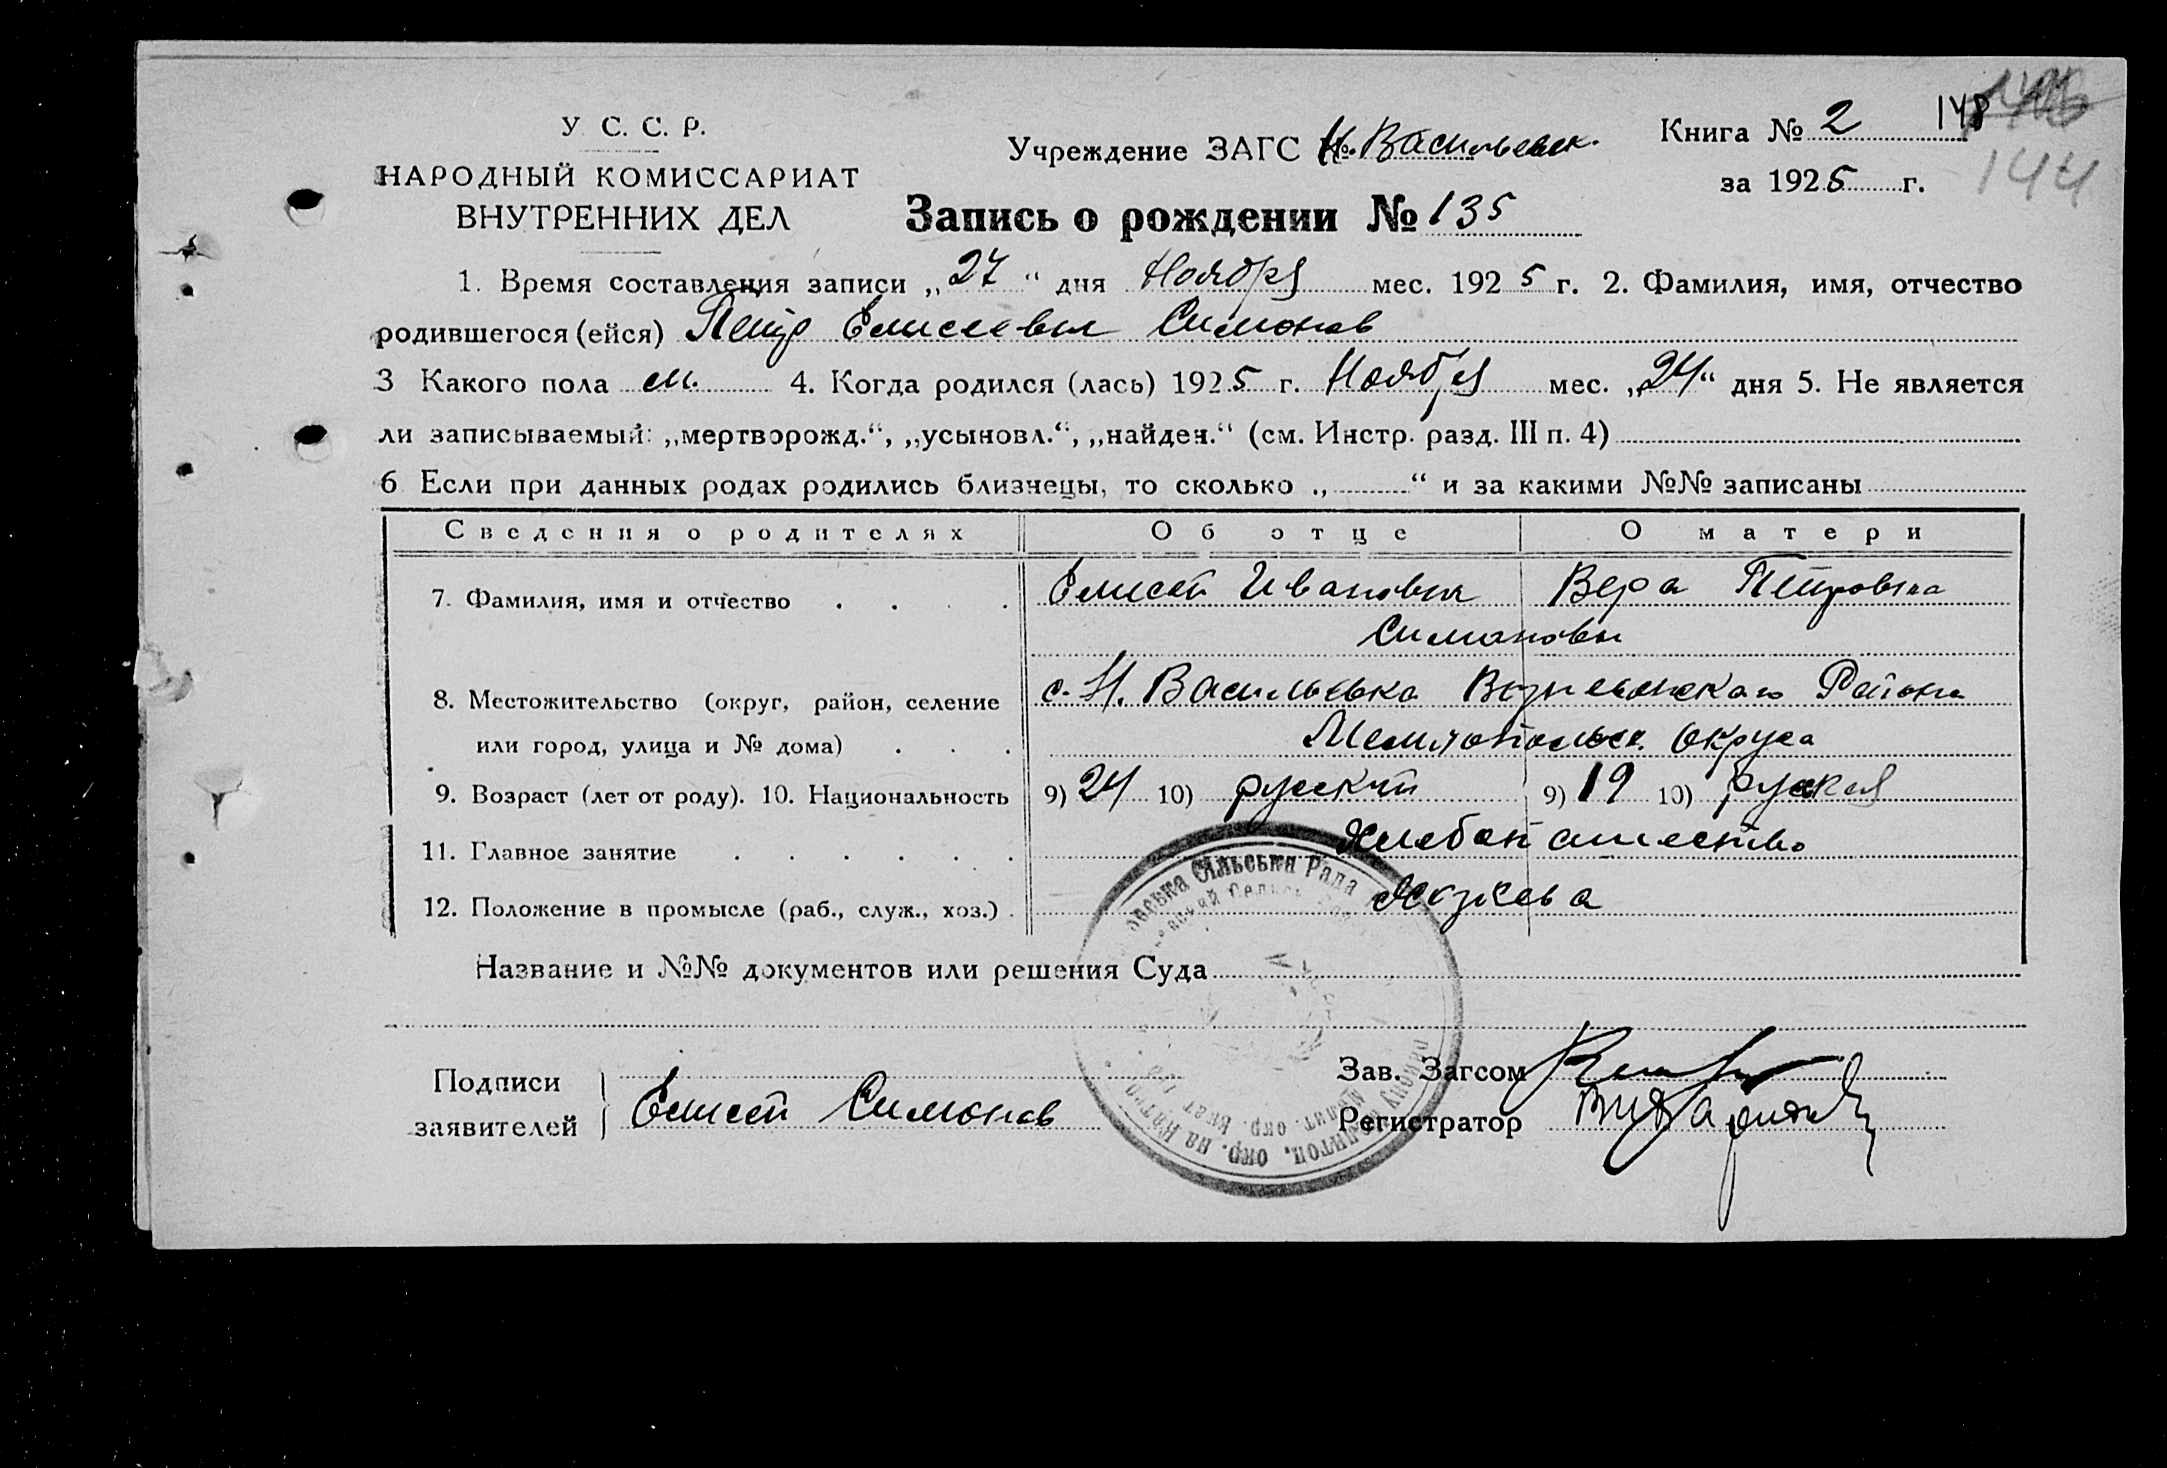 У. С. С. Р.
НАРОДНЫЙ КОМИССАРИАТ
ВНУТРЕННИХ ДЕЛ
Учреждение ЗАГС Н. Васильевск.
Книга № 2 148
за 1925 г. 144
Запись о рождении № 135
1. Время составления записи „27“ дня Ноября мес. 1925 г. 2. Фамилия, имя, отчество
родившегося (ейся) Петр Елисеевич Симонов
3 Какого пола м. 4. Когда родился (лась) 1925 г. Ноября мес. „24“ дня 5. Не является
ли записываемый: „мертворожд.“, „усыновл.“, „найден.“ (см. Инстр. разд. III п. 4)
6 Если при данных родах родились близнецы, то сколько „ “ и за какими №№ записаны
Сведения о родителях Об отце О матери
7. Фамилия, имя и отчество Елисей Иванович Вера Петровна
Симоновы
8. Местожительство (округ, район, селение с. Н. Васильевка Района
или город, улица и № дома) Мелитопольск. округа
9. Возраст (лет от роду). 10. Национальность 9) 24 10) русский 9) 19 10) руская
11. Главное занятие Хлебопашество
12. Положение в промысле (раб., служ., хоз.)
Название и №№ документов или решения Суда
Подписи
заявителей Елисей Симонов
Зав. Загсом
Регистратор
Сільська Рада